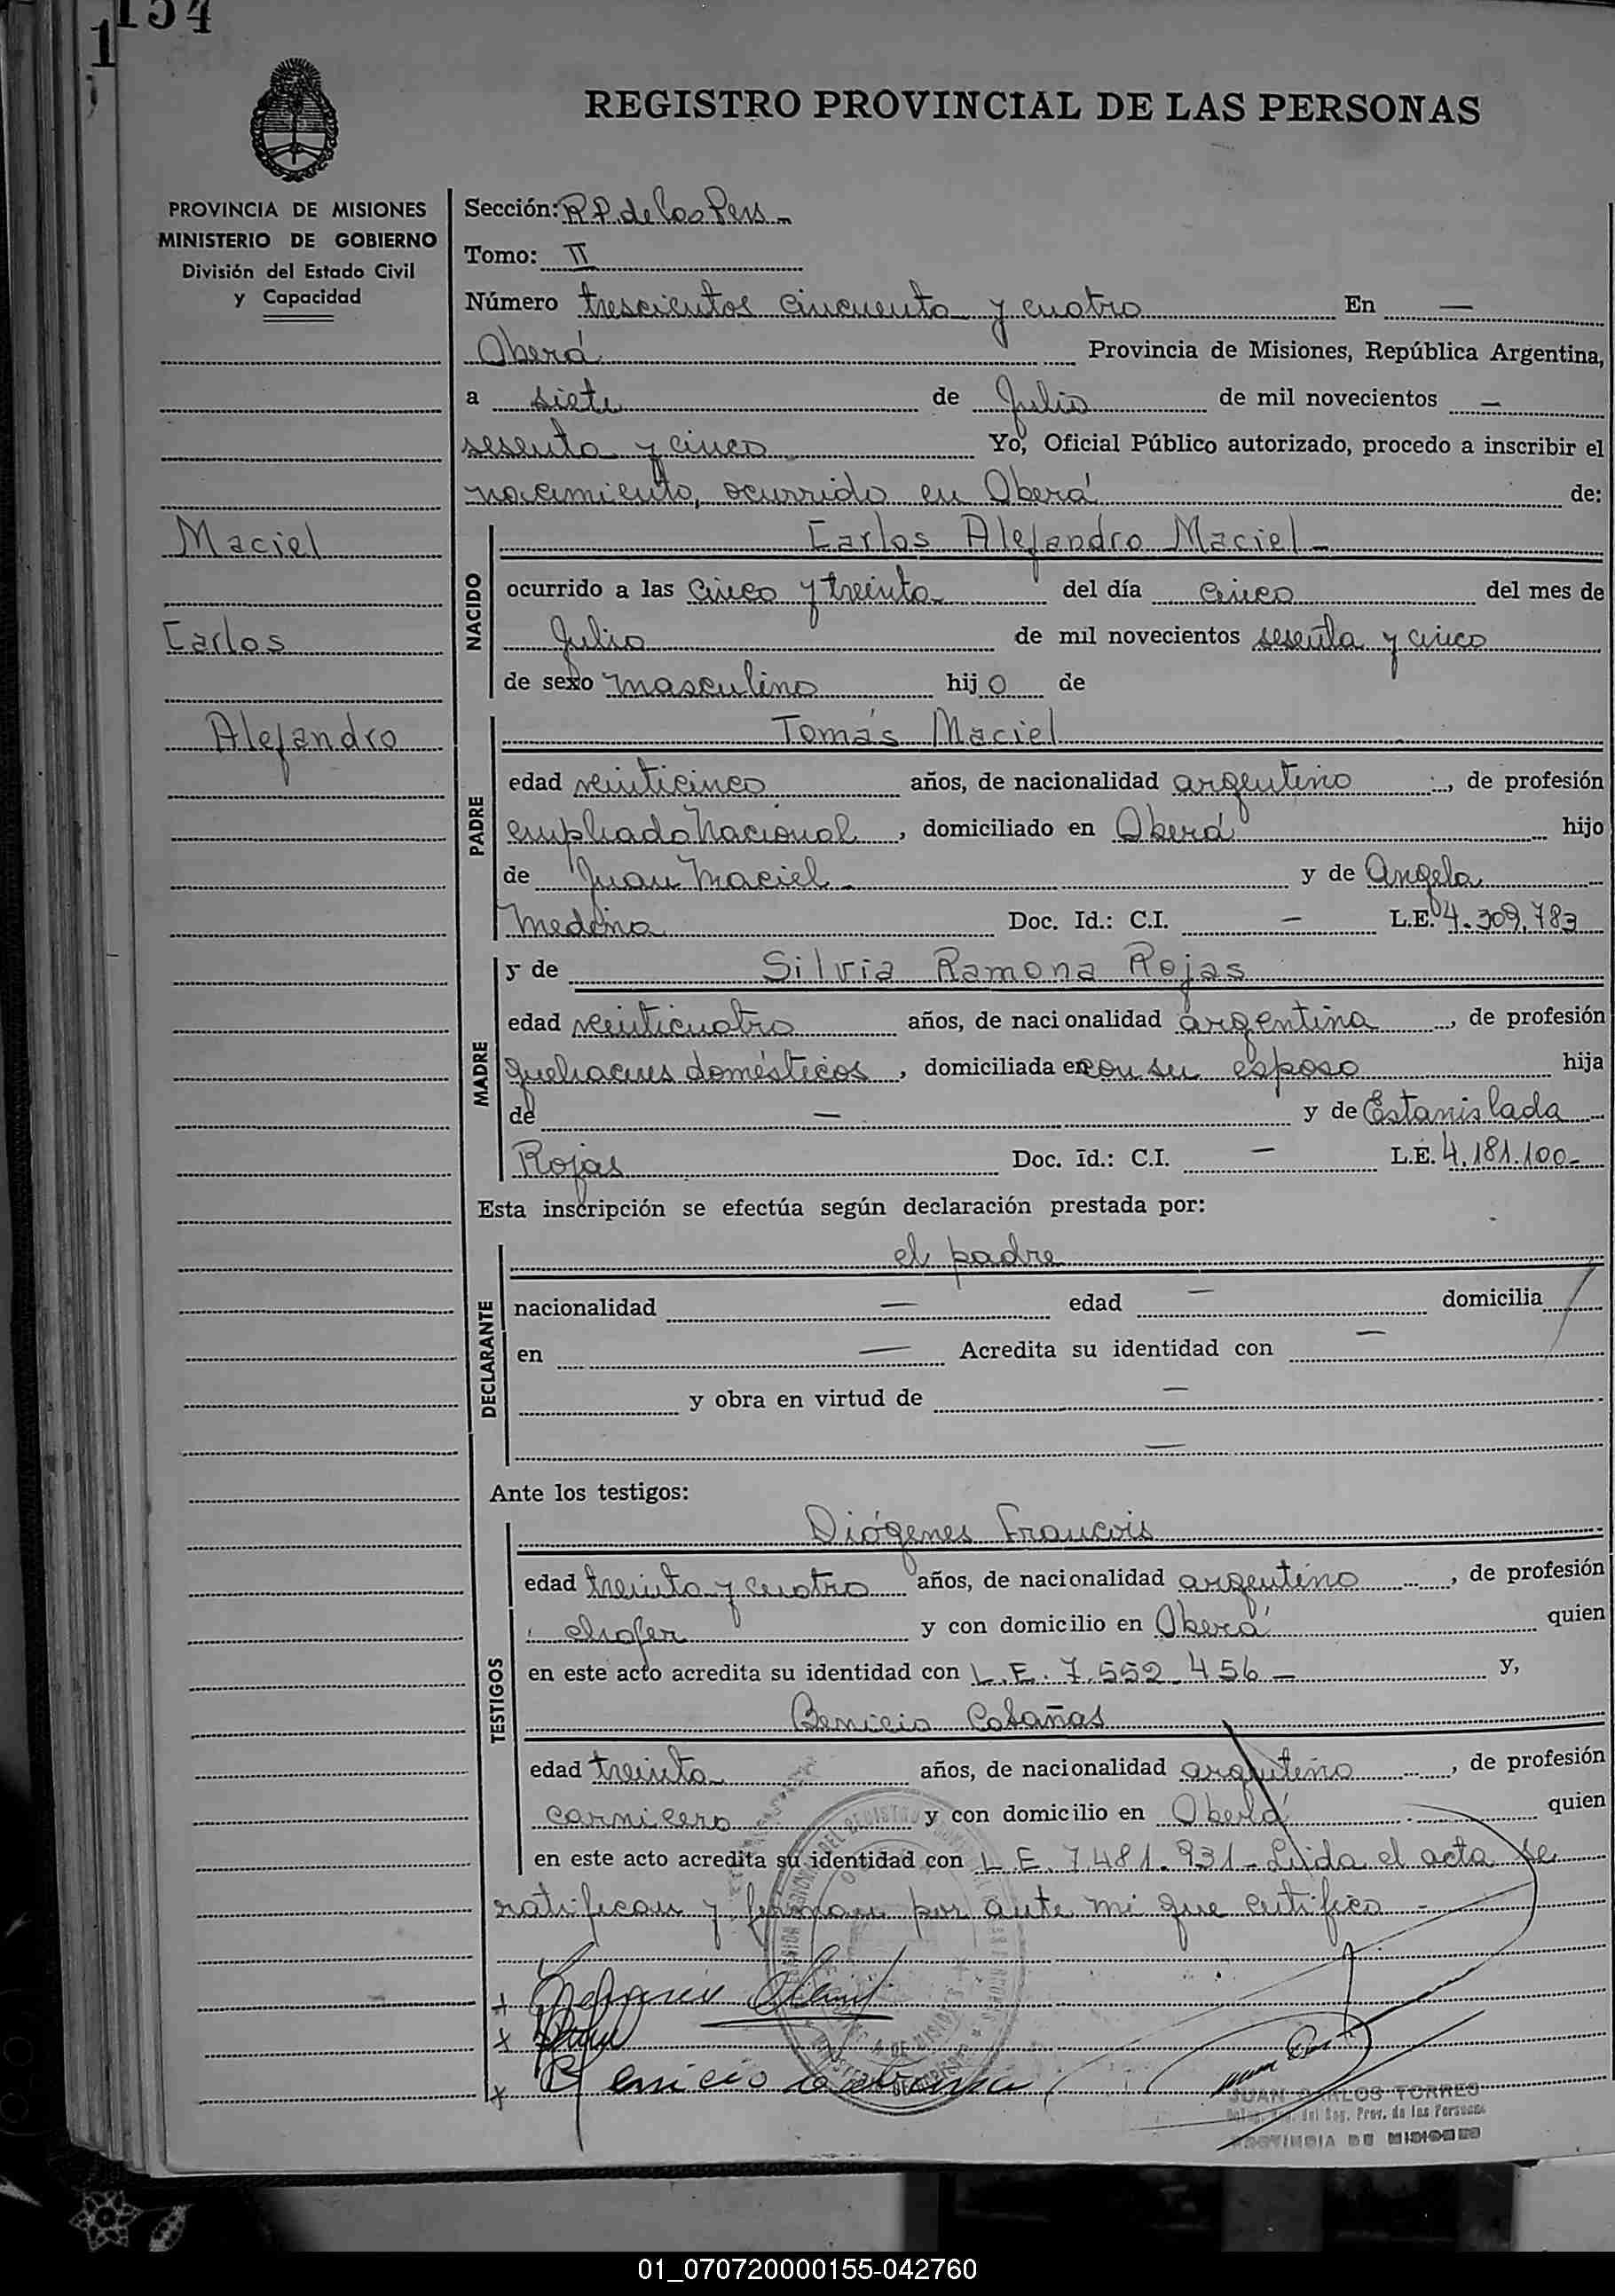 154
1
REGISTRO PROVINCIAL DE LAS PERSONAS
PROVINCIA DE MISIONES
MINISTERIO DE GOBIERNO
División del Estado Civil
y Capacidad
Maciel
Carlos
Alejandro
Sección: R.P. de las Pers
Tomo: II
Número trescientos cincuenta y cuatro En —
Oberá Provincia de Misiones, República Argentina,
a siete de Julio de mil novecientos —
sesenta y cinco Yo, Oficial Público autorizado, procedo a inscribir el
nacimiento, ocurrido en Oberá de:
NACIDO
Carlos Alejandro Maciel
ocurrido a las cinco y treinta del día cinco del mes de
Julio de mil novecientos sesenta y cinco
de sexo masculino hijo de
PADRE
Tomás Maciel
edad veinticinco años, de nacionalidad argentino, de profesión
empleado Nacional, domiciliado en Oberá hijo
de Juan Maciel y de Angela
Medina Doc. Id.: C.I. — L.E. 4.309.783
MADRE
y de Silvia Ramona Rojas
edad veinticuatro años, de nacionalidad argentina, de profesión
quehaceres domésticos, domiciliada en con su esposo hija
de — y de Estanislada
Rojas Doc. Id.: C.I. — L.E. 4.181.100-
Esta inscripción se efectúa según declaración prestada por:
DECLARANTE
el padre
nacionalidad — edad — domicilia
en — Acredita su identidad con —
y obra en virtud de —
—
Ante los testigos:
TESTIGOS
Diógenes Francois
edad treinta y cuatro años, de nacionalidad argentino, de profesión
chofer y con domicilio en Oberá quien
en este acto acredita su identidad con L.E. 7.552.456 — y,
Benicio Cabañas
edad treinta años, de nacionalidad argentino, de profesión
carnicero y con domicilio en Oberá quien
en este acto acredita su identidad con L.E. 7.481.931 - Leída el acta se
ratifican y firman por ante mi que certifico -
Benicio
JUAN CARLOS TORRES
Reg. Prov. de las Personas
PROVINCIA DE MISIONES
01_070720000155-042760